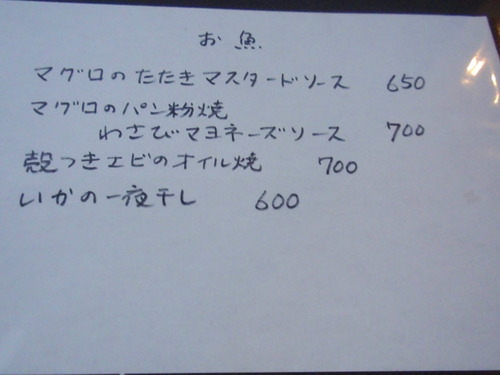 お魚
マグロのたたきマスタードソース 650
マグロのパン粉焼
わさびマヨネーズソース 700
殻つきエビのオイル焼 700
いかの一夜干し 600